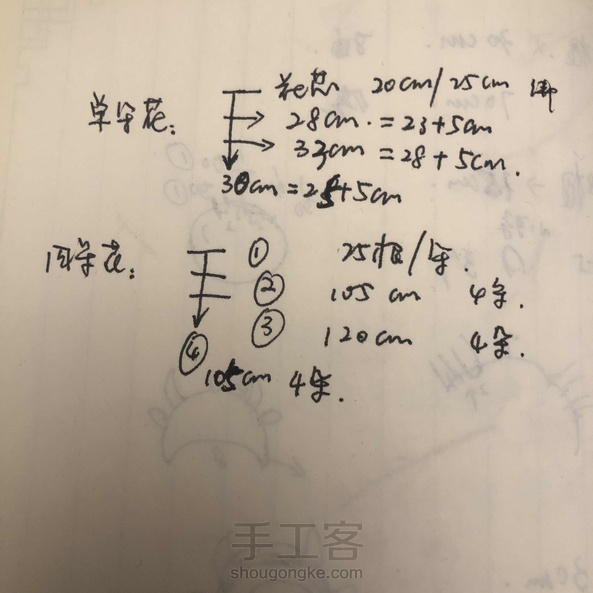 花芯 20cm/25cm
单朵花: 28cm. = 23+5cm
33cm = 28+5cm.
30cm = 25+5cm
四朵花: ① 25根/朵.
② 105cm 4朵.
③ 120cm 4朵.
④ 105cm 4朵.
手工客
shougongke.com